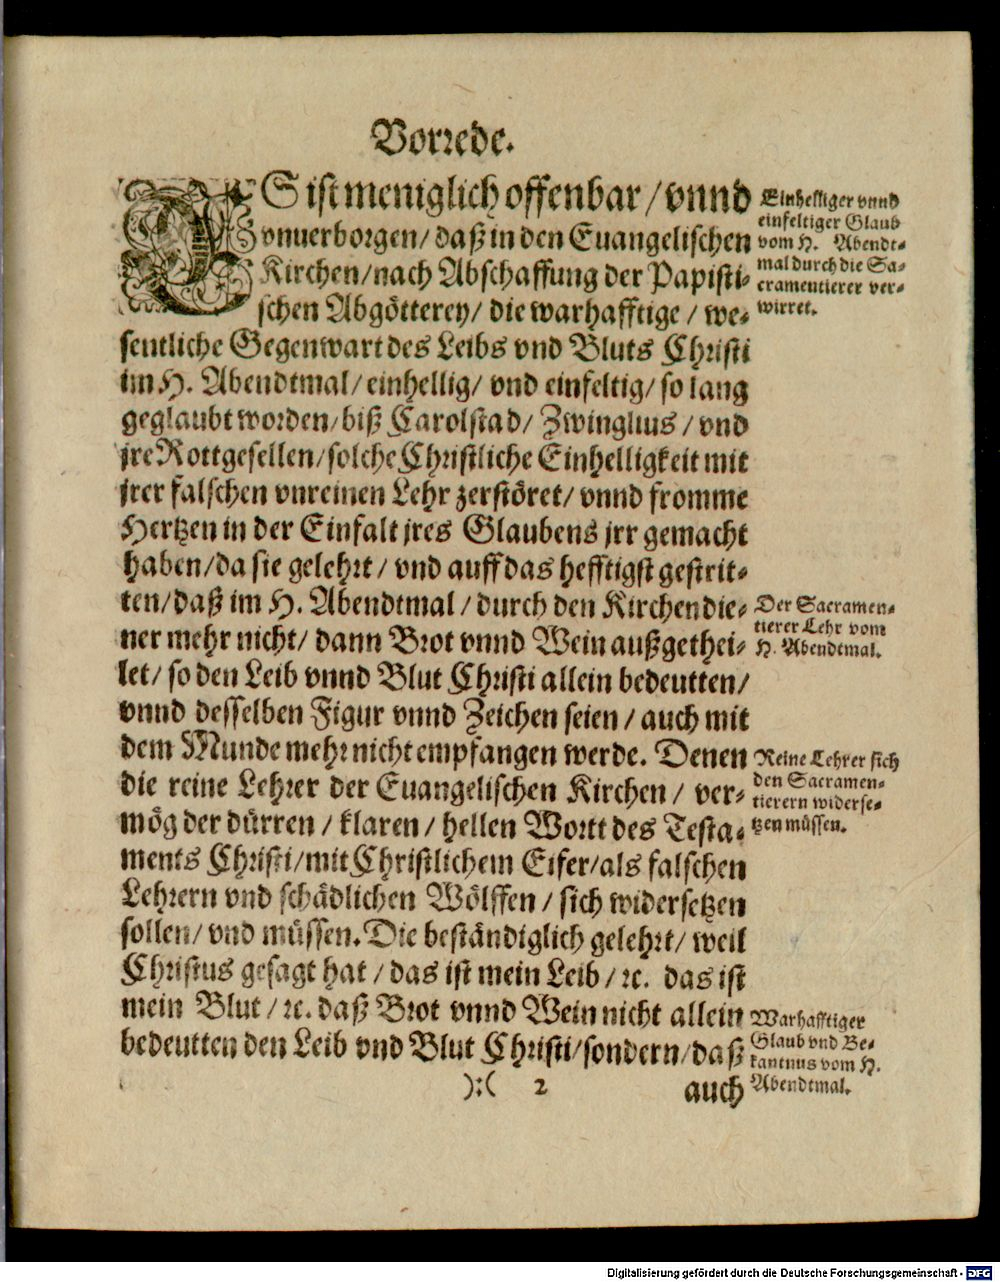 Vorrede.
ES ist meniglich offenbar / vnnd
vnuerborgen / daß in den Euangelischen
Kirchen / nach Abschaffung der Papisti⸗
schen Abgötterey / die warhafftige / we⸗
sentliche Gegenwart des Leibs vnd Bluts Christi
im H. Abendtmal / einhellig / vnd einfeltig / so lang
geglaubt worden / biß Carolstad / Zwinglius / vnd
jre Rottgesellen / solche Christliche Einhelligkeit mit
jrer falschen vnreinen Lehr zerstöret / vnnd fromme
Hertzen in der Einfalt jres Glaubens jrr gemacht
haben / da sie gelehrt / vnd auff das hefftigst gestrit⸗
ten / daß im H. Abendtmal / durch den Kirchendie⸗
ner mehr nicht / dann Brot vnnd Wein außgethei⸗
let / so den Leib vnnd Blut Christi allein bedeutten /
vnnd desselben Figur vnnd Zeichen seien / auch mit
dem Munde mehr nicht empfangen werde. Denen
die reine Lehrer der Euangelischen Kirchen / ver⸗
mög der dürren / klaren / hellen Wortt des Testa⸗
ments Christi / mit Christlichem Eifer / als falschen
Lehrern vnd schädlichen Wölffen / sich widersetzen
sollen / vnd müssen. Die beständiglich gelehrt / weil
Christus gesagt hat / das ist mein Leib / ꝛc. das ist
mein Blut / ꝛc. daß Brot vnnd Wein nicht allein
bedeutten den Leib vnd Blut Christi / sondern / daß
):( 2 auch
Einhelliger vnnd
einfeltiger Glaub
vom H. Abendt⸗
mal durch die Sa⸗
cramentierer ver⸗
wirret.
Der Sacramen⸗
tierer Lehr vom
H. Abendtmal.
Reine Lehrer sich
den Sacramen⸗
tierern widerse⸗
tzen müssen.
Warhafftiger
Glaub vnd Be⸗
kantnus vom H.
Abendtmal.
Digitalisierung gefördert durch die Deutsche Forschungsgemeinschaft - DFG